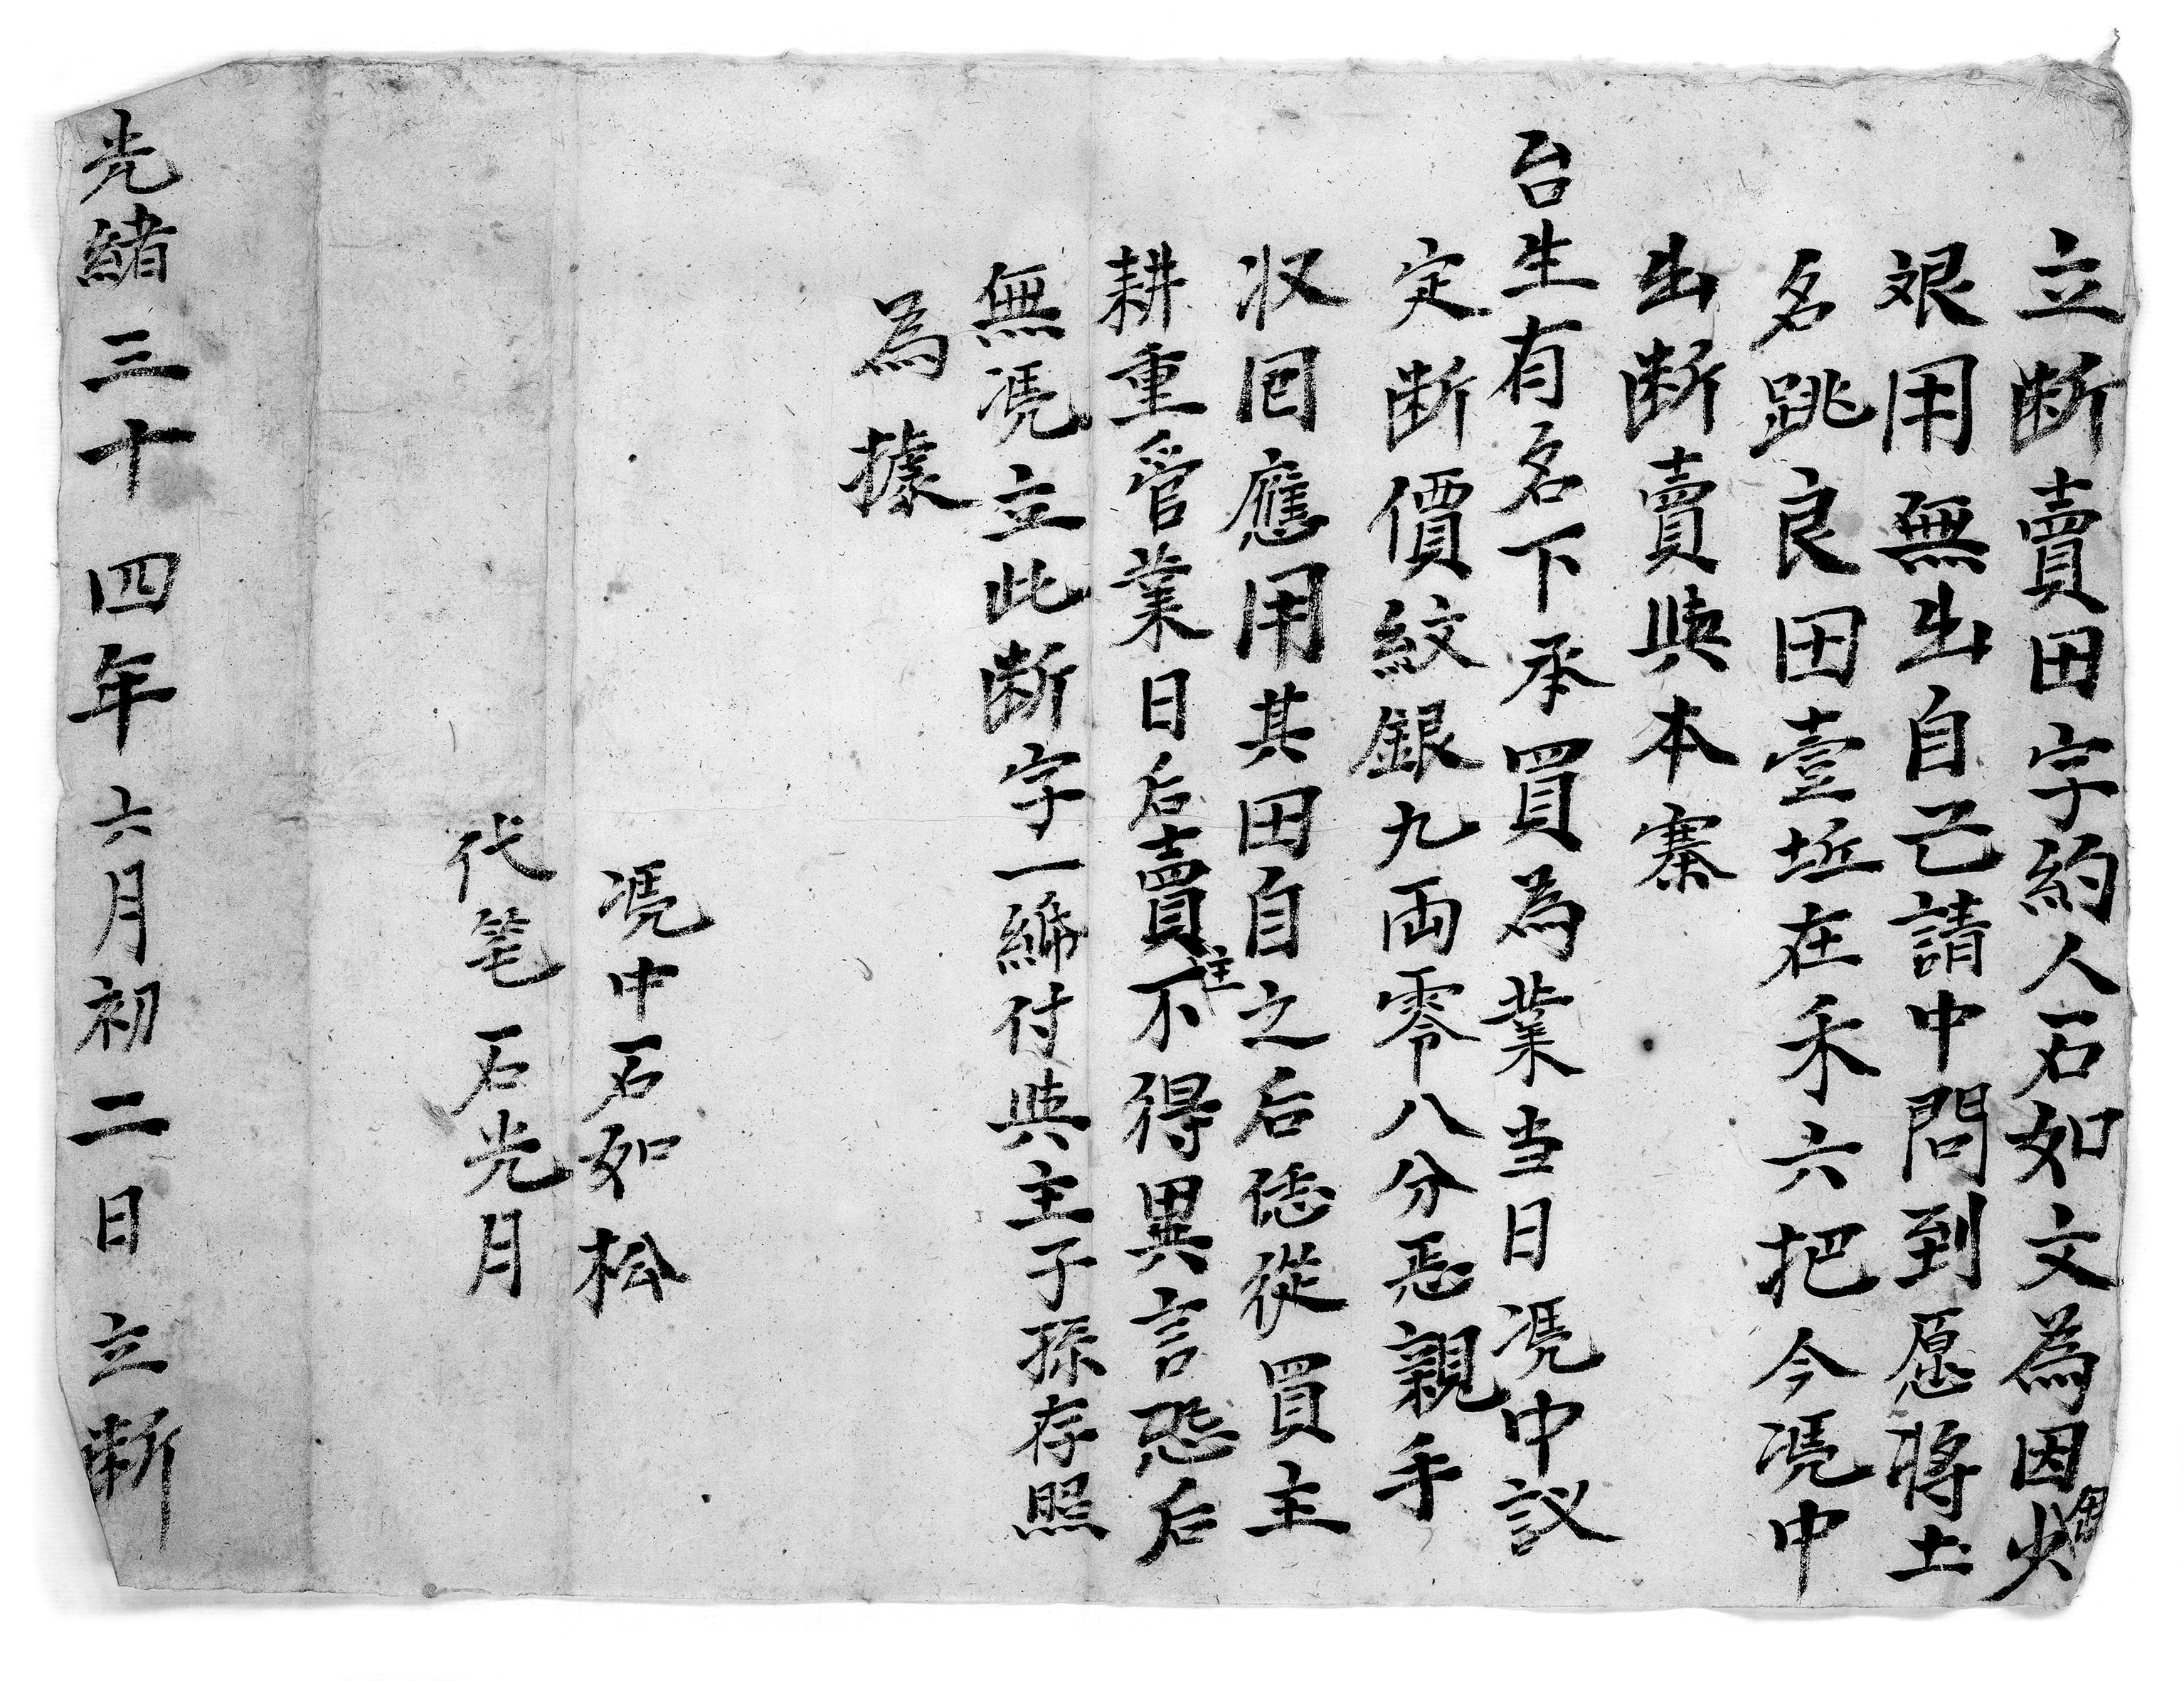 立断賣田字約人石如文為因火缺
艰用無出自己請中問到愿將土
名跳良田壹坵在禾六把今凴中
出断賣與本寨
台生有名下承買為業当日凴中議
定断價紋銀九両零八分㤙親手
収囘應用其田自之后恁從買主
耕重管業日后賣主不得異言恐后
無凴立此断字一紙付與主子孫存照
為據
凴中石如松
代笔石光月
光緒三十四年六月初二日立断